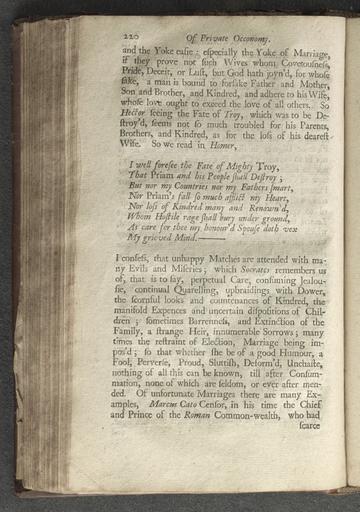 220 Of Private Oeconomy.
and the Yoke easie: especially the Yoke of Marriage,
if they prove not such Wives whom Covetousness,
Pride, Deceit, or Lust, but God hath joyn'd, for whose
sake, a man is bound to forsake Father and Mother,
Son and Brother, and Kindred, and adhere to his Wife,
whose love ought to exceed the love of all others. So
Hector seeing the Fate of Troy, which was to be De-
stroy'd, seems not so much troubled for his Parents,
Brothers, and Kindred, as for the loss of his dearest
Wife. So we read in Homer,
I well foresee the Fate of Mighty Troy,
That Priam and his People shall Destroy;
But nor my Countries nor my Fathers smart,
Nor Priam's fall so much afflict my Heart,
Nor loss of Kindred many and Renown'd,
Whom Hostile rage shall bury under ground,
As care for thee my honour'd Spouse doth vex
My grieved Mind.——
I confess, that unhappy Matches are attended with ma-
ny Evils and Miseries; which Socrates remembers us
of, that is to say, perpetual Care, consuming Jealou-
sie, continual Quarelling, upbraidings with Dower,
the scornful looks and countenances of Kindred, the
manifold Expences and uncertain dispositions of Chil-
dren; sometimes Barrenness, and Extinction of the
Family, a strange Heir, innumerable Sorrows; many
times the restraint of Election, Marriage being im-
pos'd; so that whether she be of a good Humour, a
Fool, Perverse, Proud, Sluttish, Deform'd, Unchaste,
nothing of all this can be known, till after Consum-
mation, none of which are seldom, or ever after men-
ded. Of unfortunate Marriages there are many Ex-
amples, Marcus Cato Censor, in his time the Chief
and Prince of the Roman Common-wealth, who had
scarce